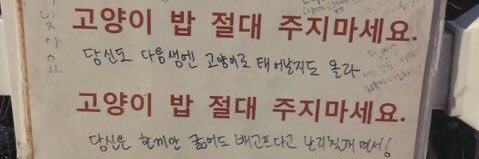 고양이 밥 절대 주지마세요.
당신도 다음생엔 고양이로 태어날지도 몰라
고양이 밥 절대 주지마세요.
당신은 한끼만 굶어도 배고프다고 난리칠거면서!